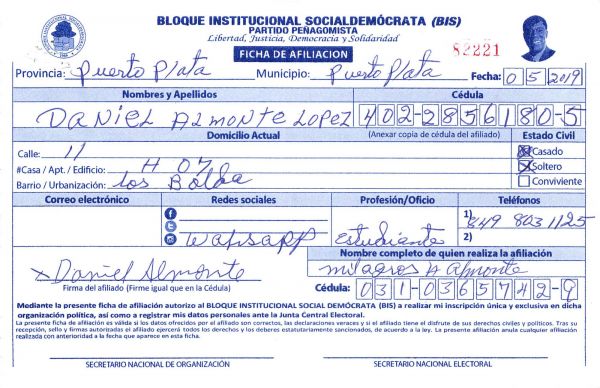 BLOQUE INSTITUCIONAL SOCIALDEMÓCRATA (BIS)
PARTIDO PEÑAGOMISTA
Libertad, Justicia, Democracia y Solidaridad
FICHA DE AFILIACION
82221
Provincia: Puerto Plata Municipio: Puerto Plata Fecha: 05 2019
Nombres y Apellidos Cédula
DANIEL ALMONTE LOPEZ 402-2856180-5
Domicilio Actual (Anexar copia de cédula del afiliado) Estado Civil
Calle: 11 Casado
#Casa / Apt. / Edificio: H 07 Soltero
Barrio / Urbanización: Los Conviviente
Correo electrónico Redes sociales Profesión/Oficio Teléfonos
Watsapp Estudiante 1) 849 803 1125
2)
Nombre completo de quien realiza la afiliación
x Daniel Almonte milagros A Almonte
Firma del afiliado (Firme igual que en la Cédula) Cédula: 031-0365742-9
Mediante la presente ficha de afiliación autorizo al BLOQUE INSTITUCIONAL SOCIAL DEMÓCRATA (BIS) a realizar mi inscripción única y exclusiva en dicha
organización política, así como a registrar mis datos personales ante la Junta Central Electoral.
La presente ficha de afiliación es válida si los datos ofrecidos por el afiliado son correctos, las declaraciones veraces y si el afiliado tiene el disfrute de sus derechos civiles y políticos. Tras su
recepción, sello y firmas autorizadas el afiliado ejercerá todos los derechos y los deberes estatutariamente sancionados, de acuerdo a la ley. La presente afiliación anula cualquier afiliación
realizada con anterioridad a la fecha que aparece en esta ficha.
SECRETARIO NACIONAL DE ORGANIZACIÓN SECRETARIO NACIONAL ELECTORAL